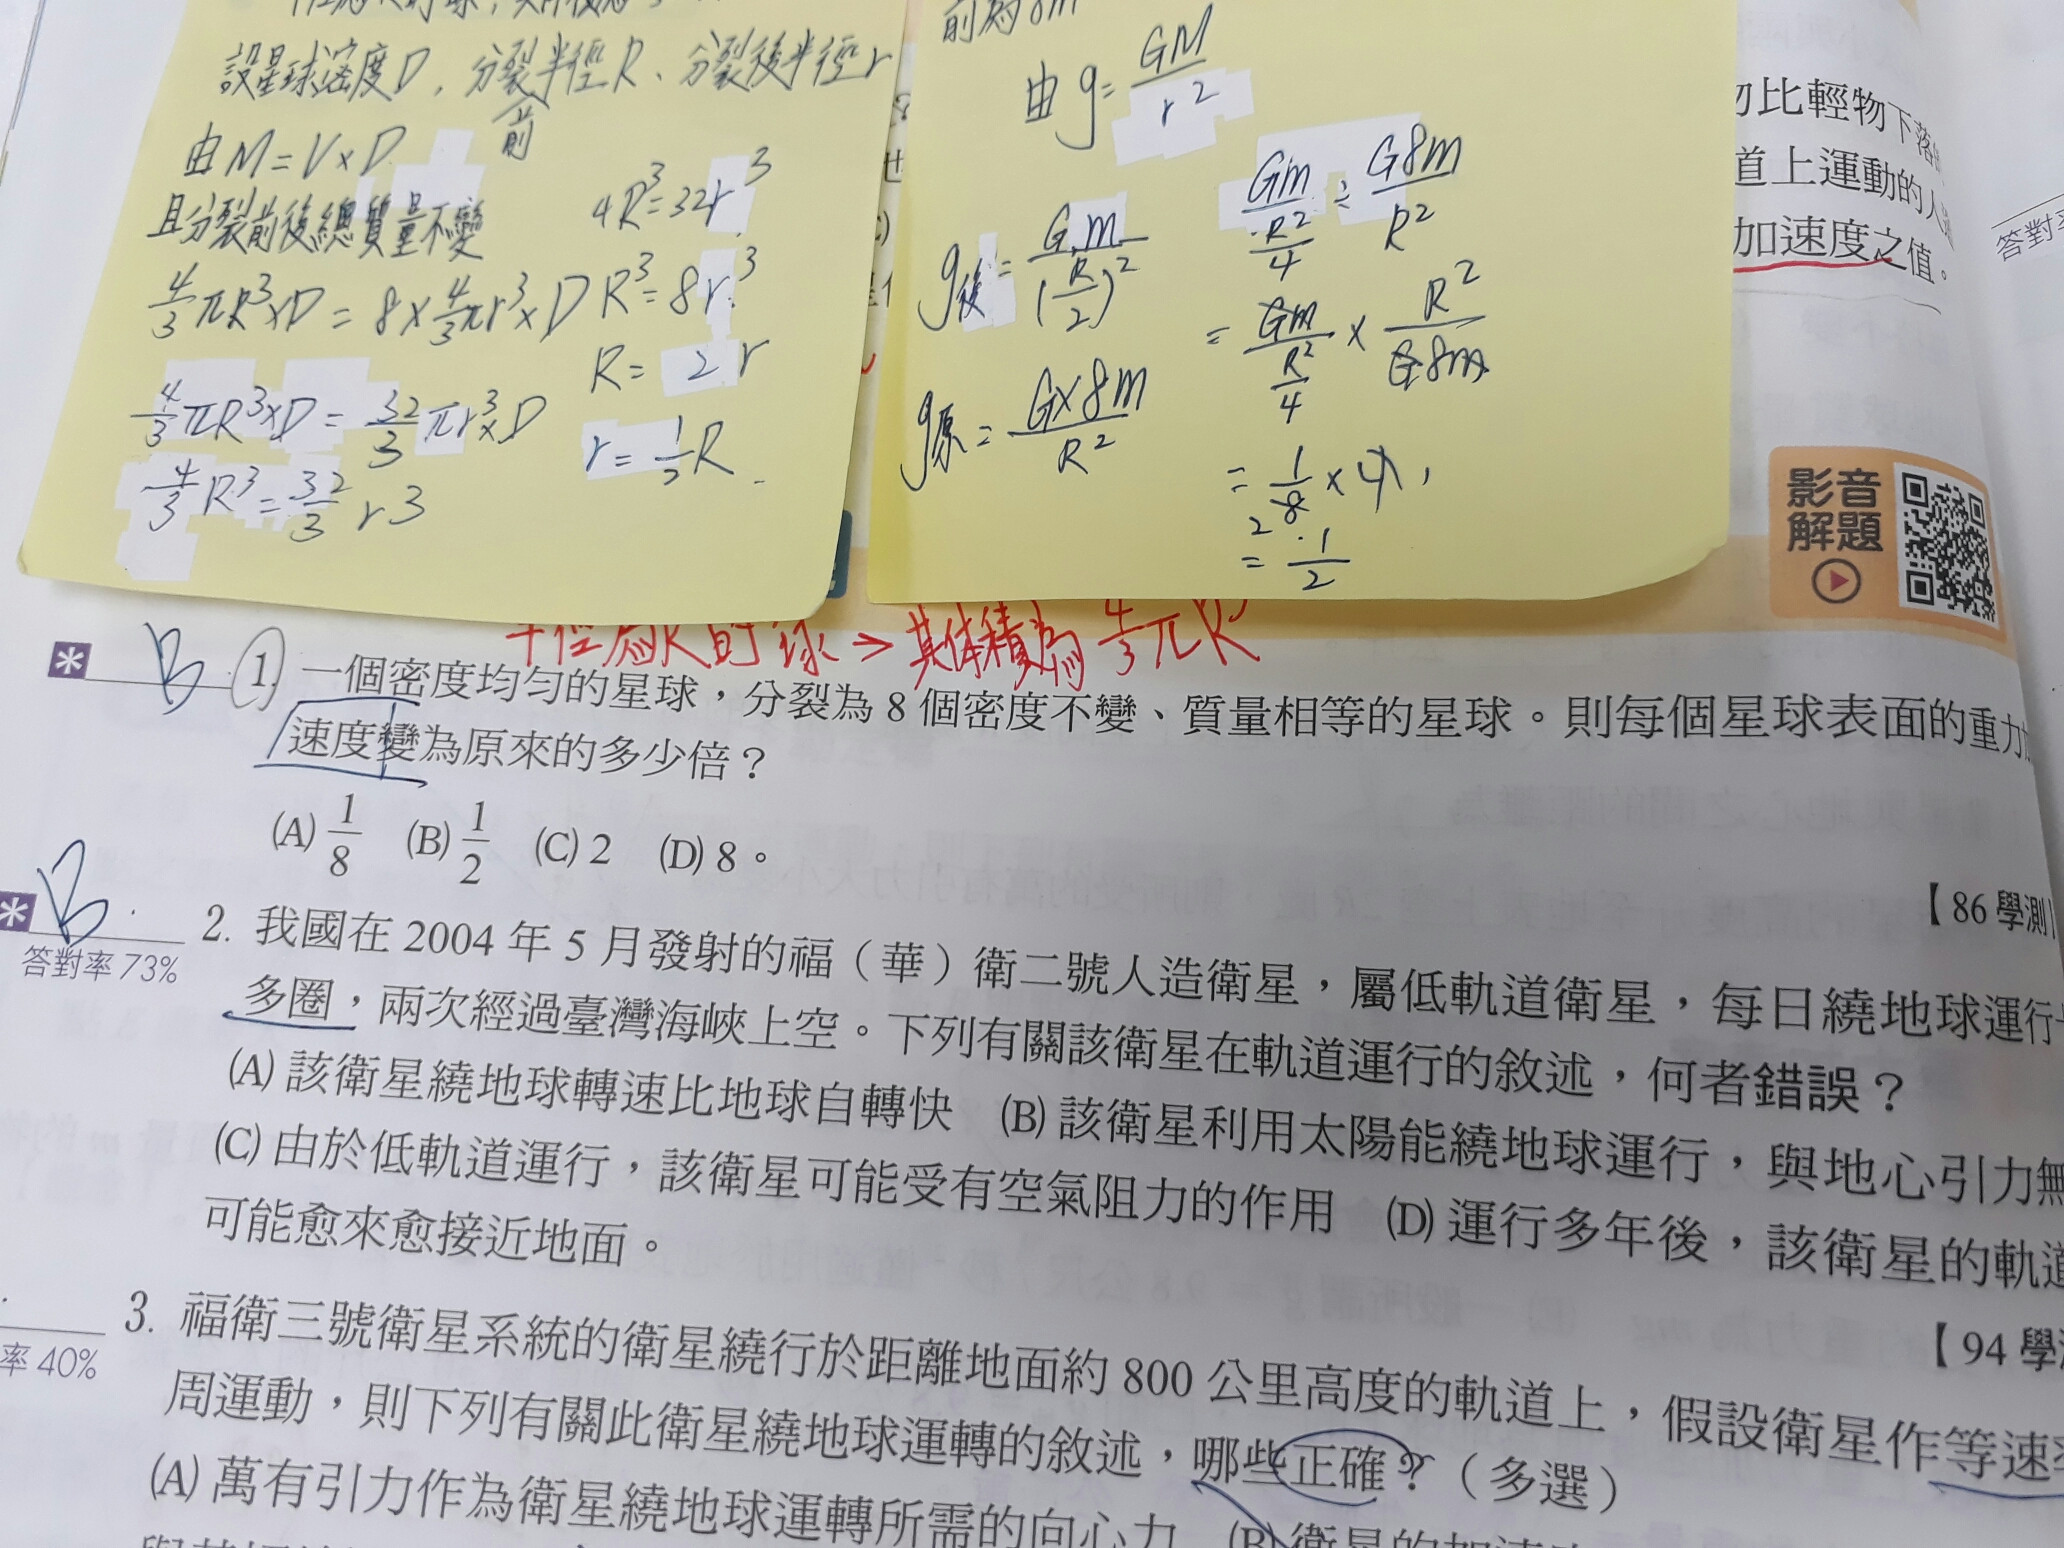 設星球密度D,分裂前半徑R、分裂後半徑r
由M=V×D
且分裂前後總質量不變
4/3πR³×D=8×4/3πr³×D
4/3πR³×D=32/3πr³×D
4/3R³=32/3 r3
4R³=32r³
R³=8r³
R=2r
r=1/2R
前為8m
由g=GM/r²
g後=Gm/(R/2)²
g原=G×8m/R²
Gm/(R²/4)÷G8m/R²
=Gm/(R²/4)×R²/G8m
=1/8×4
2
=1/2
物比輕物下落
道上運動的人
加速度之值。
答對
影音
解題
半徑為R的球→其體積為4/3πR³
* B 1. 一個密度均勻的星球,分裂為8個密度不變、質量相等的星球。則每個星球表面的重力加
速度變為原來的多少倍?
(A) 1/8 (B) 1/2 (C) 2 (D) 8。
【86學測】
* B 2. 我國在2004年5月發射的福(華)衛二號人造衛星,屬低軌道衛星,每日繞地球運行
答對率73%
多圈,兩次經過臺灣海峽上空。下列有關該衛星在軌道運行的敘述,何者錯誤?
(A) 該衛星繞地球轉速比地球自轉快 (B) 該衛星利用太陽能繞地球運行,與地心引力無
(C) 由於低軌道運行,該衛星可能受有空氣阻力的作用 (D) 運行多年後,該衛星的軌道
可能愈來愈接近地面。
【94學測
3. 福衛三號衛星系統的衛星繞行於距離地面約800公里高度的軌道上,假設衛星作等速率
率40%
周運動,則下列有關此衛星繞地球運轉的敘述,哪些正確?(多選)
(A) 萬有引力作為衛星繞地球運轉所需的向心力 (B) 衛星的加速度